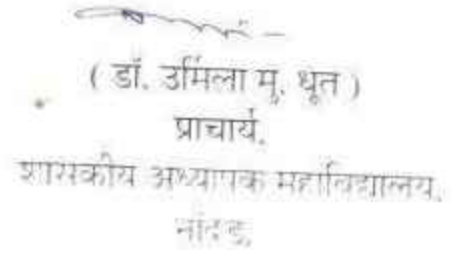 ( डॉ. उर्मिला मु. धूत )
प्राचार्य.
शासकीय अध्यापक महाविद्यालय.
नांदेड.